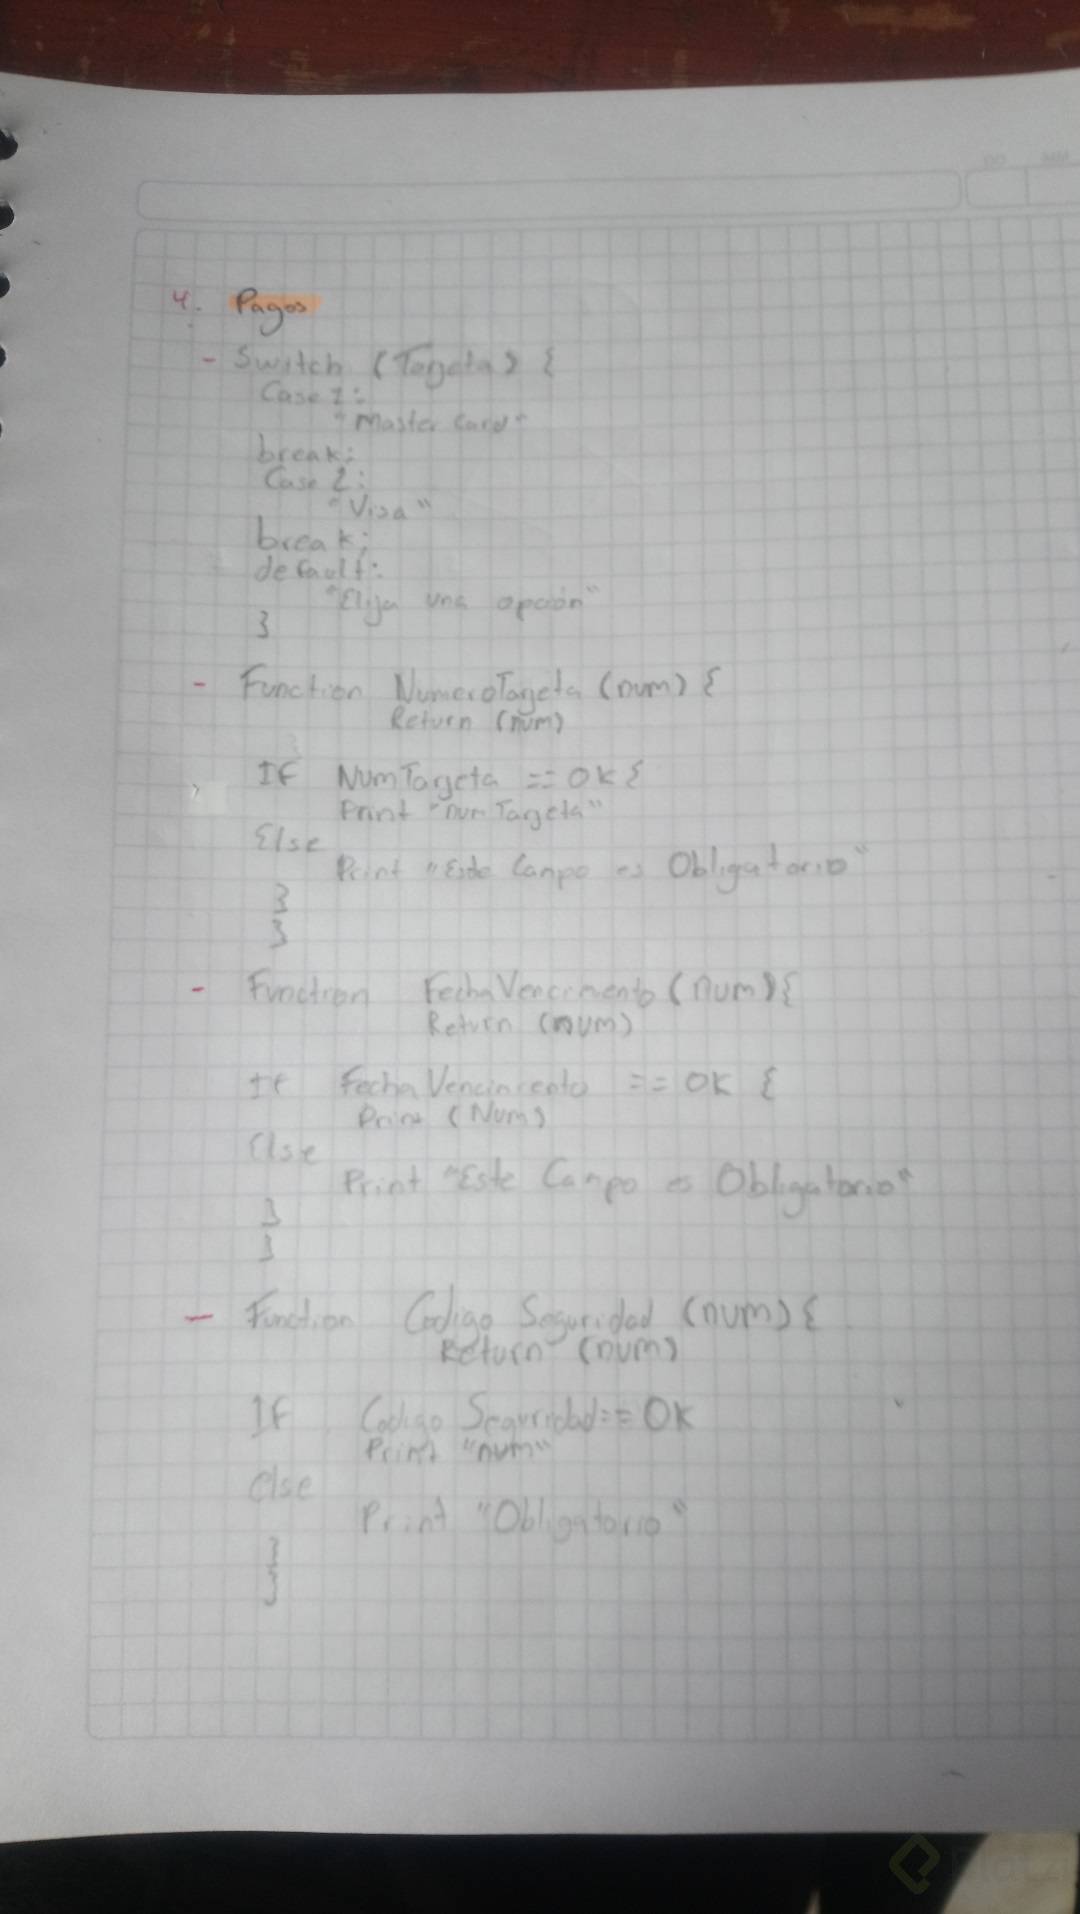 4. Pagos
- Switch (Targeta) {
Case 1:
"Master Card"
break;
Case 2:
"Visa"
break;
default:
"Elija una opción"
}
- Function NumeroTargeta (num) {
Return (num)
IF NumTargeta == OK {
Print "numTargeta"
Else
Print "Este Campo es Obligatorio"
}
}
- Function FechaVencimento (num) {
Return (num)
If FechaVencimiento == OK {
Print (Num)
Else
Print "Este Campo es Obligatorio"
}
}
- Function Codigo Seguridad (num) {
Return (num)
IF Codigo Seguridad == OK
Print "num"
else
Print "Obligatorio"
}
}